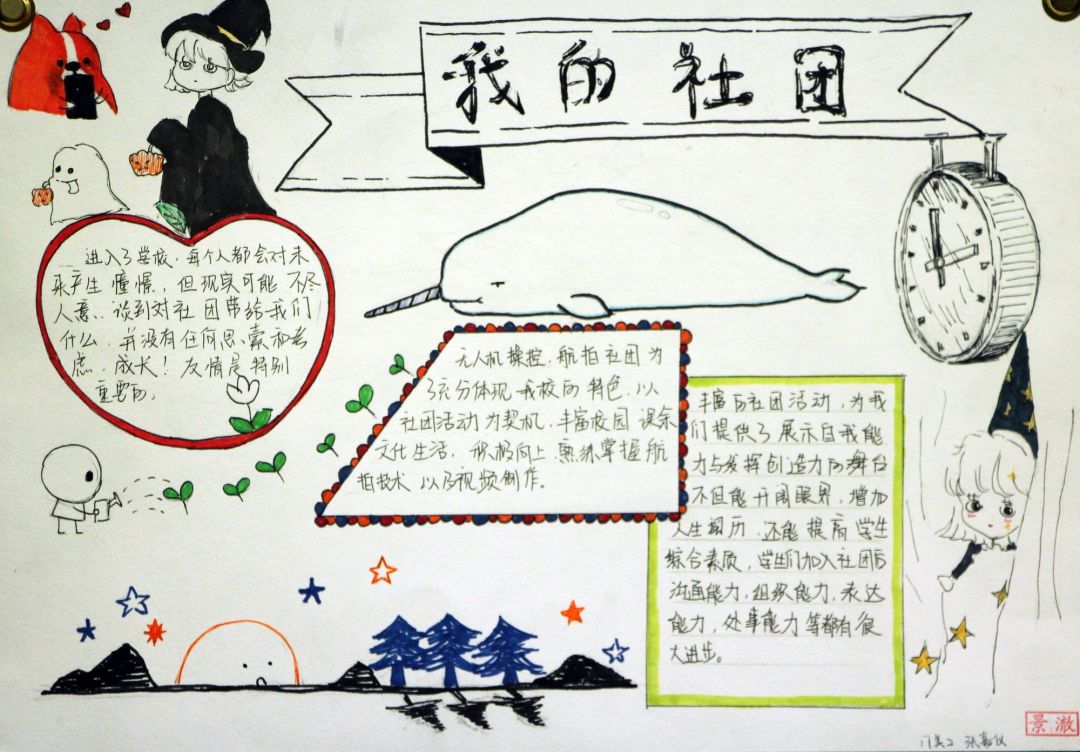 我的社团
进入了学校,每个人都会对未
来产生憧憬,但现实可能不尽
人意,谈到对社团带给我们
什么,并没有任何思索和考
虑,成长!友情是特别
重要的。
无人机操控,航拍社团为
了充分体现我校的特色,以
社团活动为契机,丰富校园课余
文化生活,积极向上熟练掌握航
拍技术以及视频制作。
丰富的社团活动,为我
们提供了展示自我能
力与发挥创造力的舞台
不但能开阔眼界,增加
人生阅历,还能提高学生
综合素质,学生们加入社团后
沟通能力,组织能力,表达
能力,处事能力等都有很
大进步。
景澈
张嘉仪